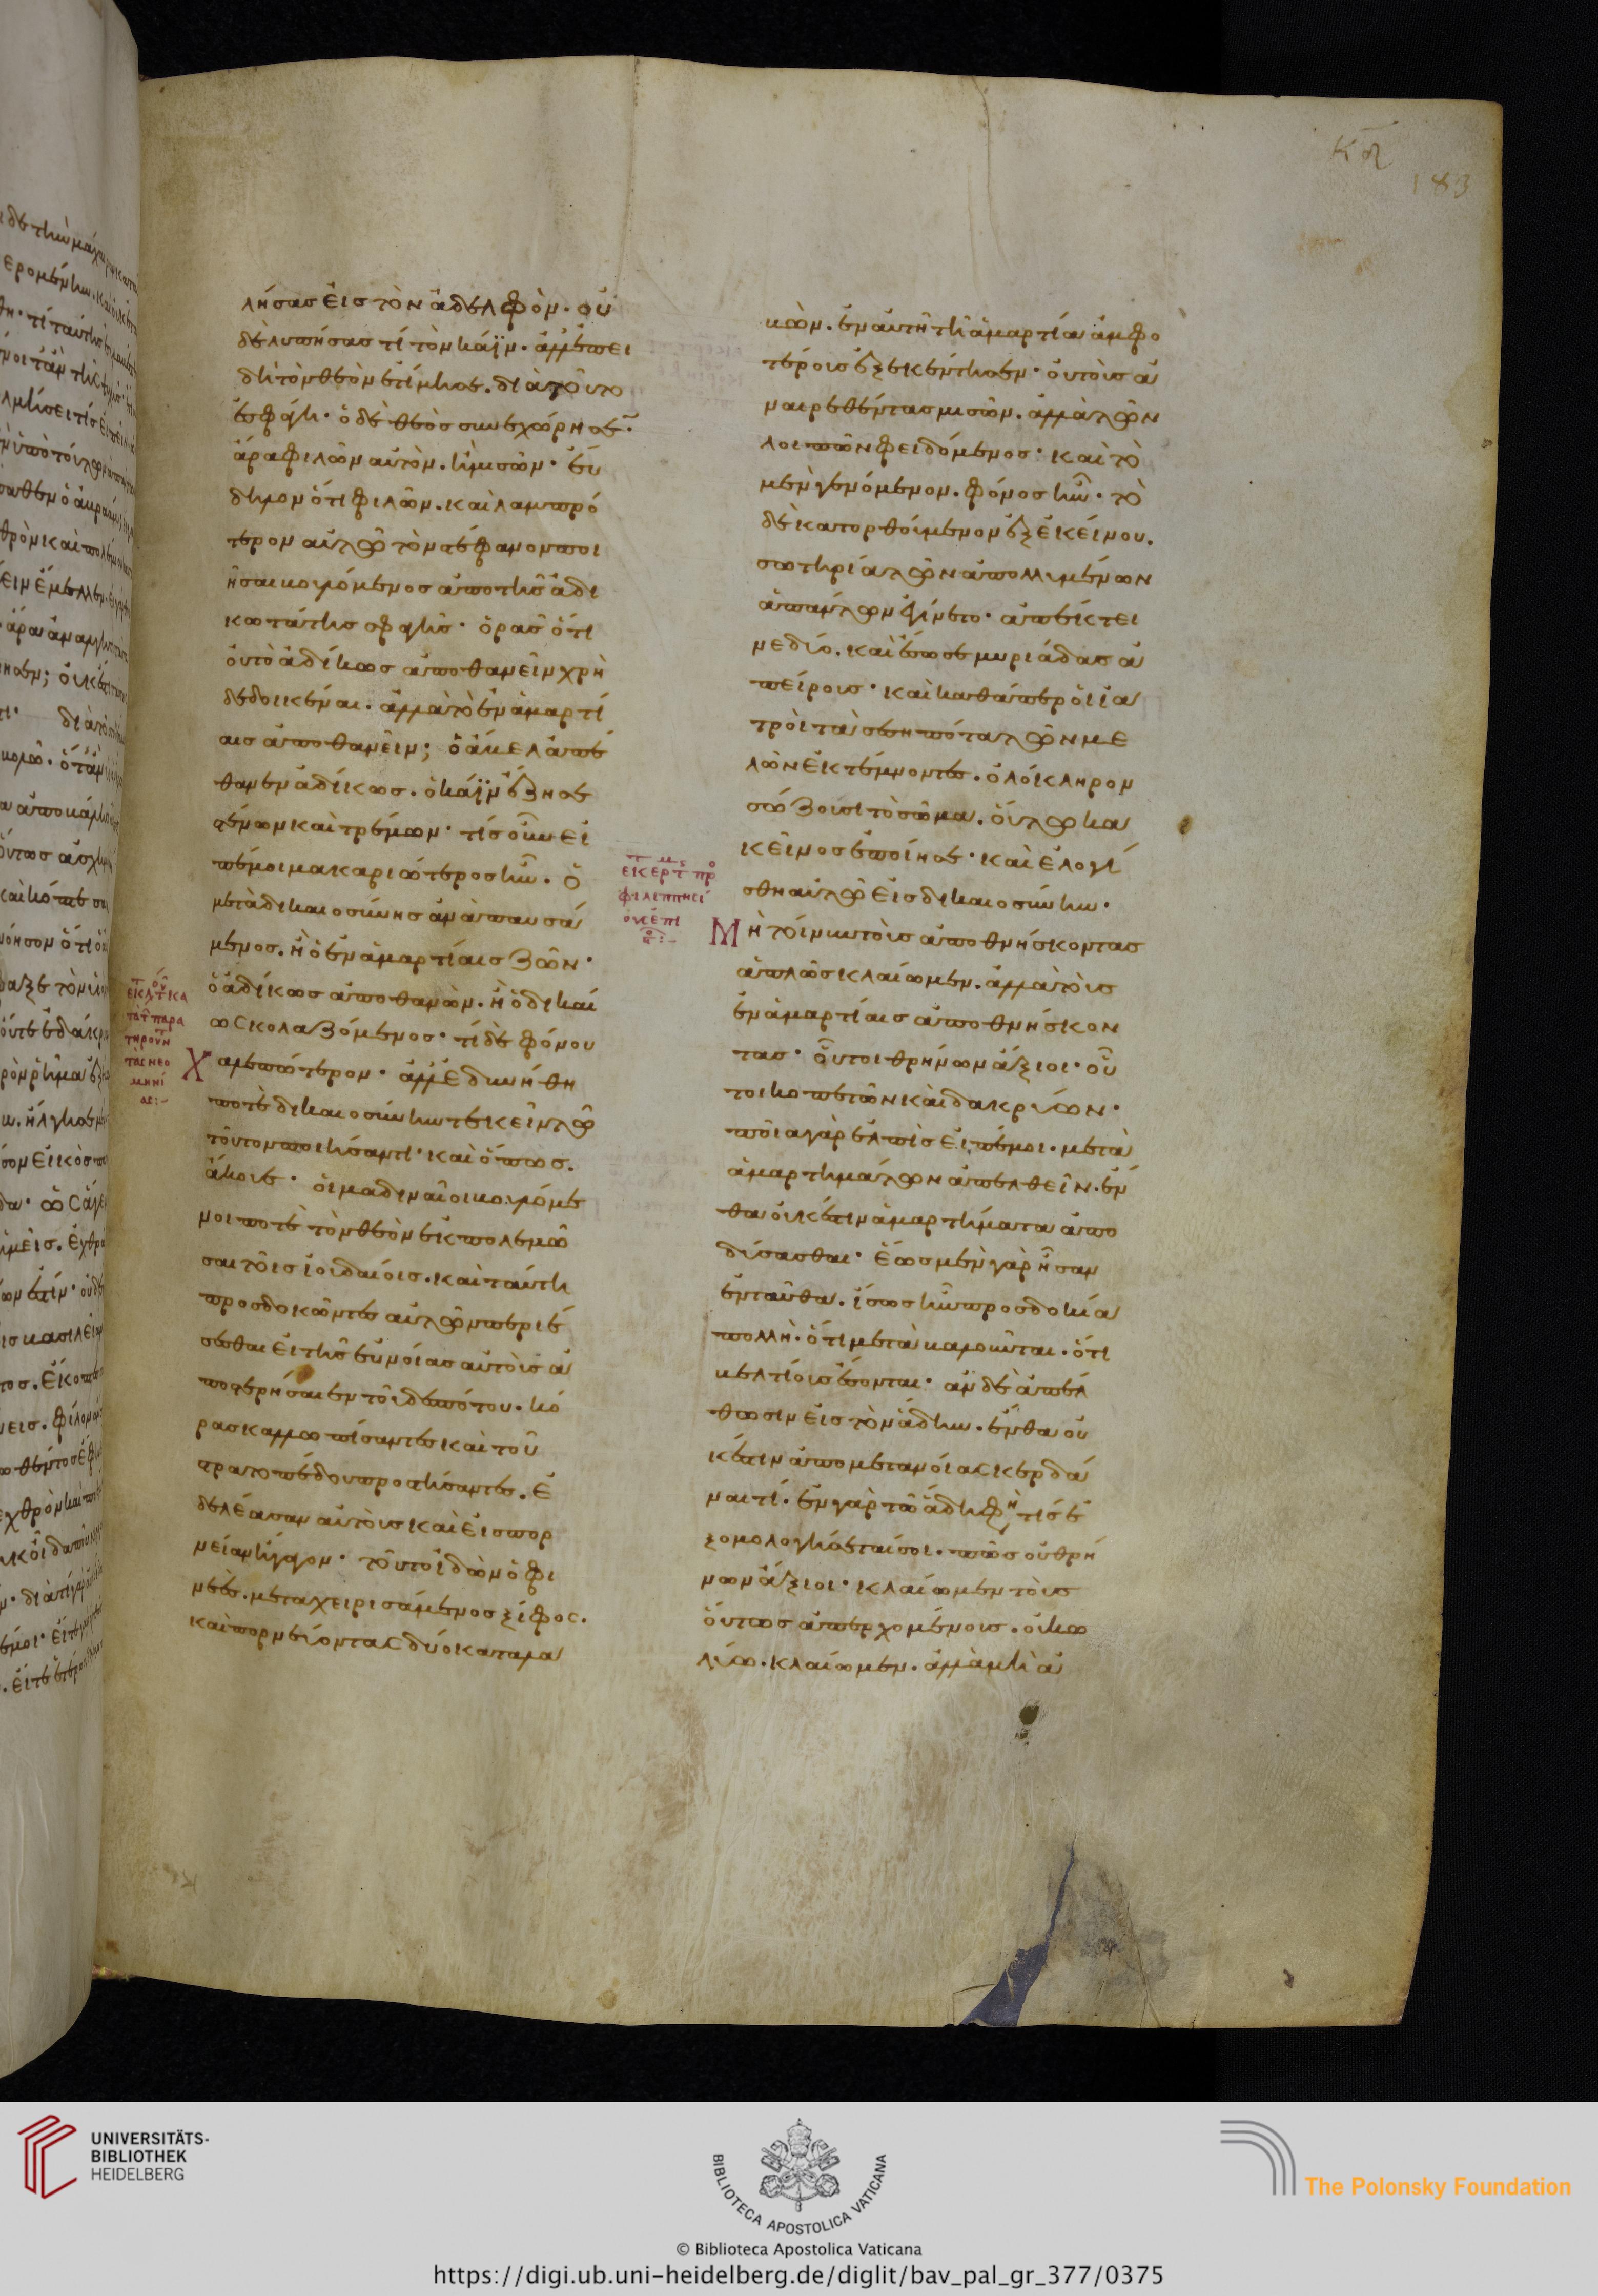 λήσας εἰς τὸν ἀδελφόν. οὐ
δὲ λυπήσας τί τὸν κάϊν. ἀλλ' ἐπει
δὴ τὸν θεὸν ἐτίμησε. διὰ τοῦτο
ἐσφάγη. ὁ δὲ θεὸς συνεχώρησε.
ἆρα φιλῶν αὐτὸν. ἢ μισῶν. εὔ
δηλον ὅτι φιλῶν. καὶ λαμπρό
τερον αὐτῶ τὸν στέφανον ποι
ῆσαι βουλόμενος ἀπὸ τῆς ἀδι
κωτάτης σφαγῆς. ὁρᾶς ὅτι
οὐ τὸ ἀδίκως ἀποθανεῖν χρὴ
δεδοικέναι. ἀλλὰ τὸ ἐν ἁμαρτί
αις ἀποθανεῖν; ὁ ἄβελ ἀπέ
θανεν ἀδίκως. ὁ κάϊν ἔζησε
στένων καὶ τρέμων. τίς οὖν εἰ
πέ μοι μακαριώτερος ἦν. ὁ
μετὰ δικαιοσύνης ἀναπαυσά
μενος. ἢ ὁ ἐν ἁμαρτίαις ζῶν.
ὁ ἀδίκως ἀποθανών. ἢ ὁ δικαί
ως κολαζόμενος. τί δὲ φόνου
χαλεπώτερον. ἀλλ' ἐδυνήθη
ποτὲ δικαιοσύνην τεκεῖν τῶ
τοῦτον ποιήσαντι. καὶ ὅπως.
ἄκουε. οἱ μαδιναῖοι βουλόμε
νοι ποτὲ τὸν θεὸν ἐκπολεμῶ
σαι τοῖς ἰουδαίοις. καὶ ταύτη
προσδοκῶντες αὐτῶν περιέ
σεσθαι εἰ τῆς εὐνοίας αὐτοὺς ἀ
ποστερήσαιεν τοῦ δεσπότου. κό
ρας καλλωπίσαντες καὶ τοῦ
στρατοπέδου προστήσαντες. ἐ
δελέασαν αὐτοὺς καὶ εἰς πορ
νείαν ἤγαγον. τοῦτο ἰδὼν ὁ φι
νεές. μεταχειρισάμενος ξίφος.
καὶ πορνεύοντας δύο καταλα
κη
183
βών. ἐν αὐτῆ τῆ ἁμαρτία ἀμφο
τέρους ἐξεκέντησεν. οὐ τοὺς ἀ
ναιρεθέντας μισῶν. ἀλλὰ τῶν
λοιπῶν φειδόμενος. καὶ τὸ
μὲν γενόμενον. φόνος ἦν. τὸ
δὲ κατορθούμενον ἐξ ἐκείνου.
σωτηρία τῶν ἀπολλυμένων
ἁπάντων ἐγίνετο. ἀπέκτει
νε δύο. καὶ ἔσωσε μυριάδας ἀ
πείρους. καὶ καθάπερ οἱ ἰα
τροὶ τὰ σεσηπότα τῶν με
λῶν ἐκτέμνοντες. ὁλόκληρον
σώζουσι τὸ σῶμα. οὕτω κα
κεῖνος ἐποίησε. καὶ ἐλογί
σθη αὐτῶ εἰς δικαιοσύνην.
Μὴ τοίνυν τοὺς ἀποθνήσκοντας
ἁπλῶς κλαίωμεν. ἀλλὰ τοὺς
ἐν ἁμαρτίαις ἀποθνήσκον
τας. οὗτοι θρήνων ἄξιοι. οὗ
τοι κοπετῶν καὶ δακρύων.
ποία γὰρ ἐλπὶς εἰπέ μοι. μετὰ
ἁμαρτημάτων ἀπελθεῖν. ἔν
θα οὐκ ἔστιν ἁμαρτήματα ἀπο
δύσασθαι. ἕως μὲν γὰρ ἦσαν
ἐνταῦθα. ἴσως ἦν προσδοκία
πολλὴ. ὅτι μεταβαλοῦνται. ὅτι
βελτίους ἔσονται. ἂν δὲ ἀπέλ
θωσιν εἰς τὸν ἅδην. ἔνθα οὐ
κ ἔστιν ἀπὸ μετανοίας κερδά
ναι τί. ἐν γὰρ τῶ ἅδη φη τίς ἐ
ξομολογήσεταί σοι. πῶς οὐ θρή
νων ἄξιοι. κλαίωμεν τοὺς
ὄντως ἀπερχομένους. οὐ κω
λύω. κλαίωμεν. ἀλλὰ μὴ ἀ
UNIVERSITÄTS-
BIBLIOTHEK
HEIDELBERG
BIBLIOTECA APOSTOLICA VATICANA
The Polonsky Foundation
© Biblioteca Apostolica Vaticana
https://digi.ub.uni-heidelberg.de/diglit/bav_pal_gr_377/0375